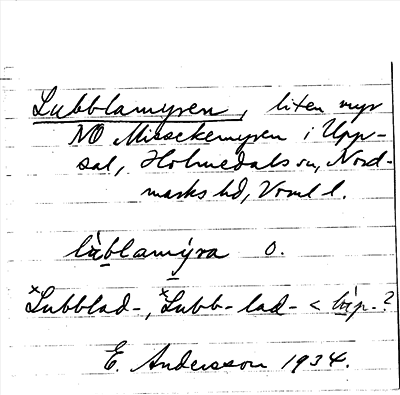 Lubblamyren, liten myr
NO Missekemyren i Upp-
sal, Holmedals sn, Nord-
marks hd, Vrml l.
lùblamýra O.
×Lubblad-, ×Lubb-lad- <
E. Andersson 1934.